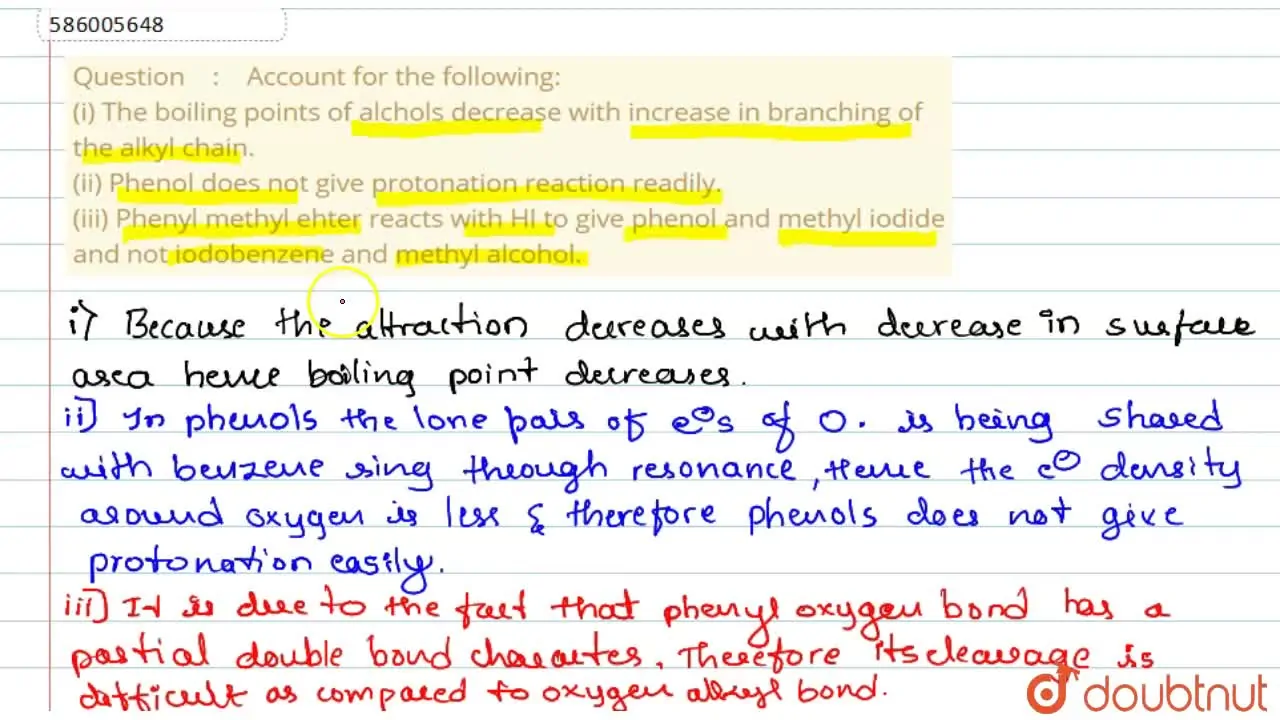 586005648
Question : Account for the following:
(i) The boiling points of alchols decrease with increase in branching of
the alkyl chain.
(ii) Phenol does not give protonation reaction readily.
(iii) Phenyl methyl ehter reacts with HI to give phenol and methyl iodide
and not iodobenzene and methyl alcohol.
i) Because the attraction decreases with decrease in surface
area hence boiling point decreases.
ii] In phenols the lone pair of e⊖s of O. is being shared
with benzene ring through resonance, Hence the e⊖ density
around oxygen is less & therefore phenols does not give
protonation easily.
iii] It is due to the fact that phenyl oxygen bond has a
partial double bond character. Therefore its cleavage is
difficult as compared to oxygen alkyl bond.
doubtnut